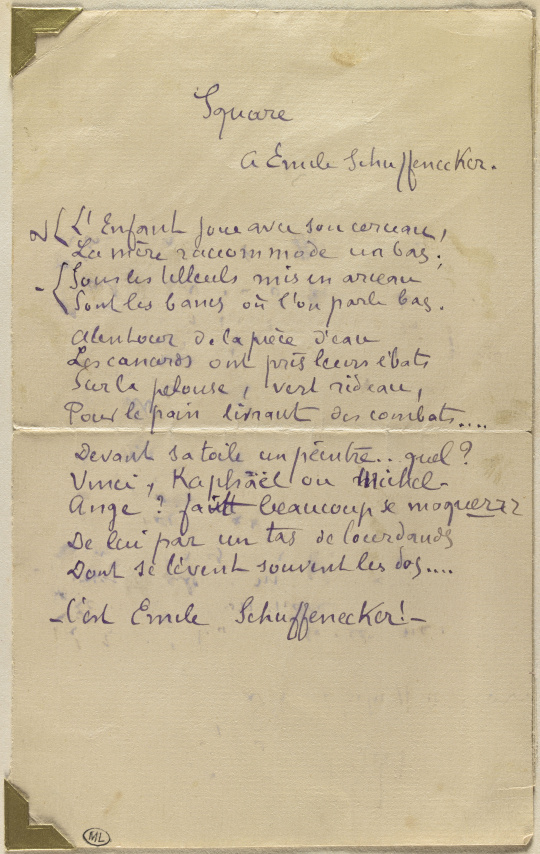 Square
A Emile Schuffenecker.
2 { L'Enfant joue avec son cerceau,
La mère raccommode un bas;
- { Sous les tilleuls mis en arceau
Sont les bancs où l'on parle bas.
Alentour de la pièce d'eau
Les canards ont pris leurs ébats
Sur la pelouse, vert rideau,
Pour le pain livrant des combats....
Devant sa toile un peintre.. quel?
Vinci, Raphaël ou Michel-
Ange? fait beaucoup se moquer
De lui par un tas de lourdauds
Dont se lèvent souvent les dos....
- C'est Emile Schuffenecker! -
ML